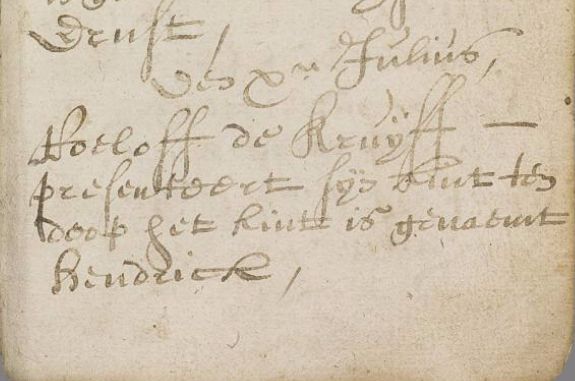 Ernst,
den xen Julius,
Roeloff de Kruÿff —
presenteert sÿn kint ten
doop het kint is genaemt
Hendrick,